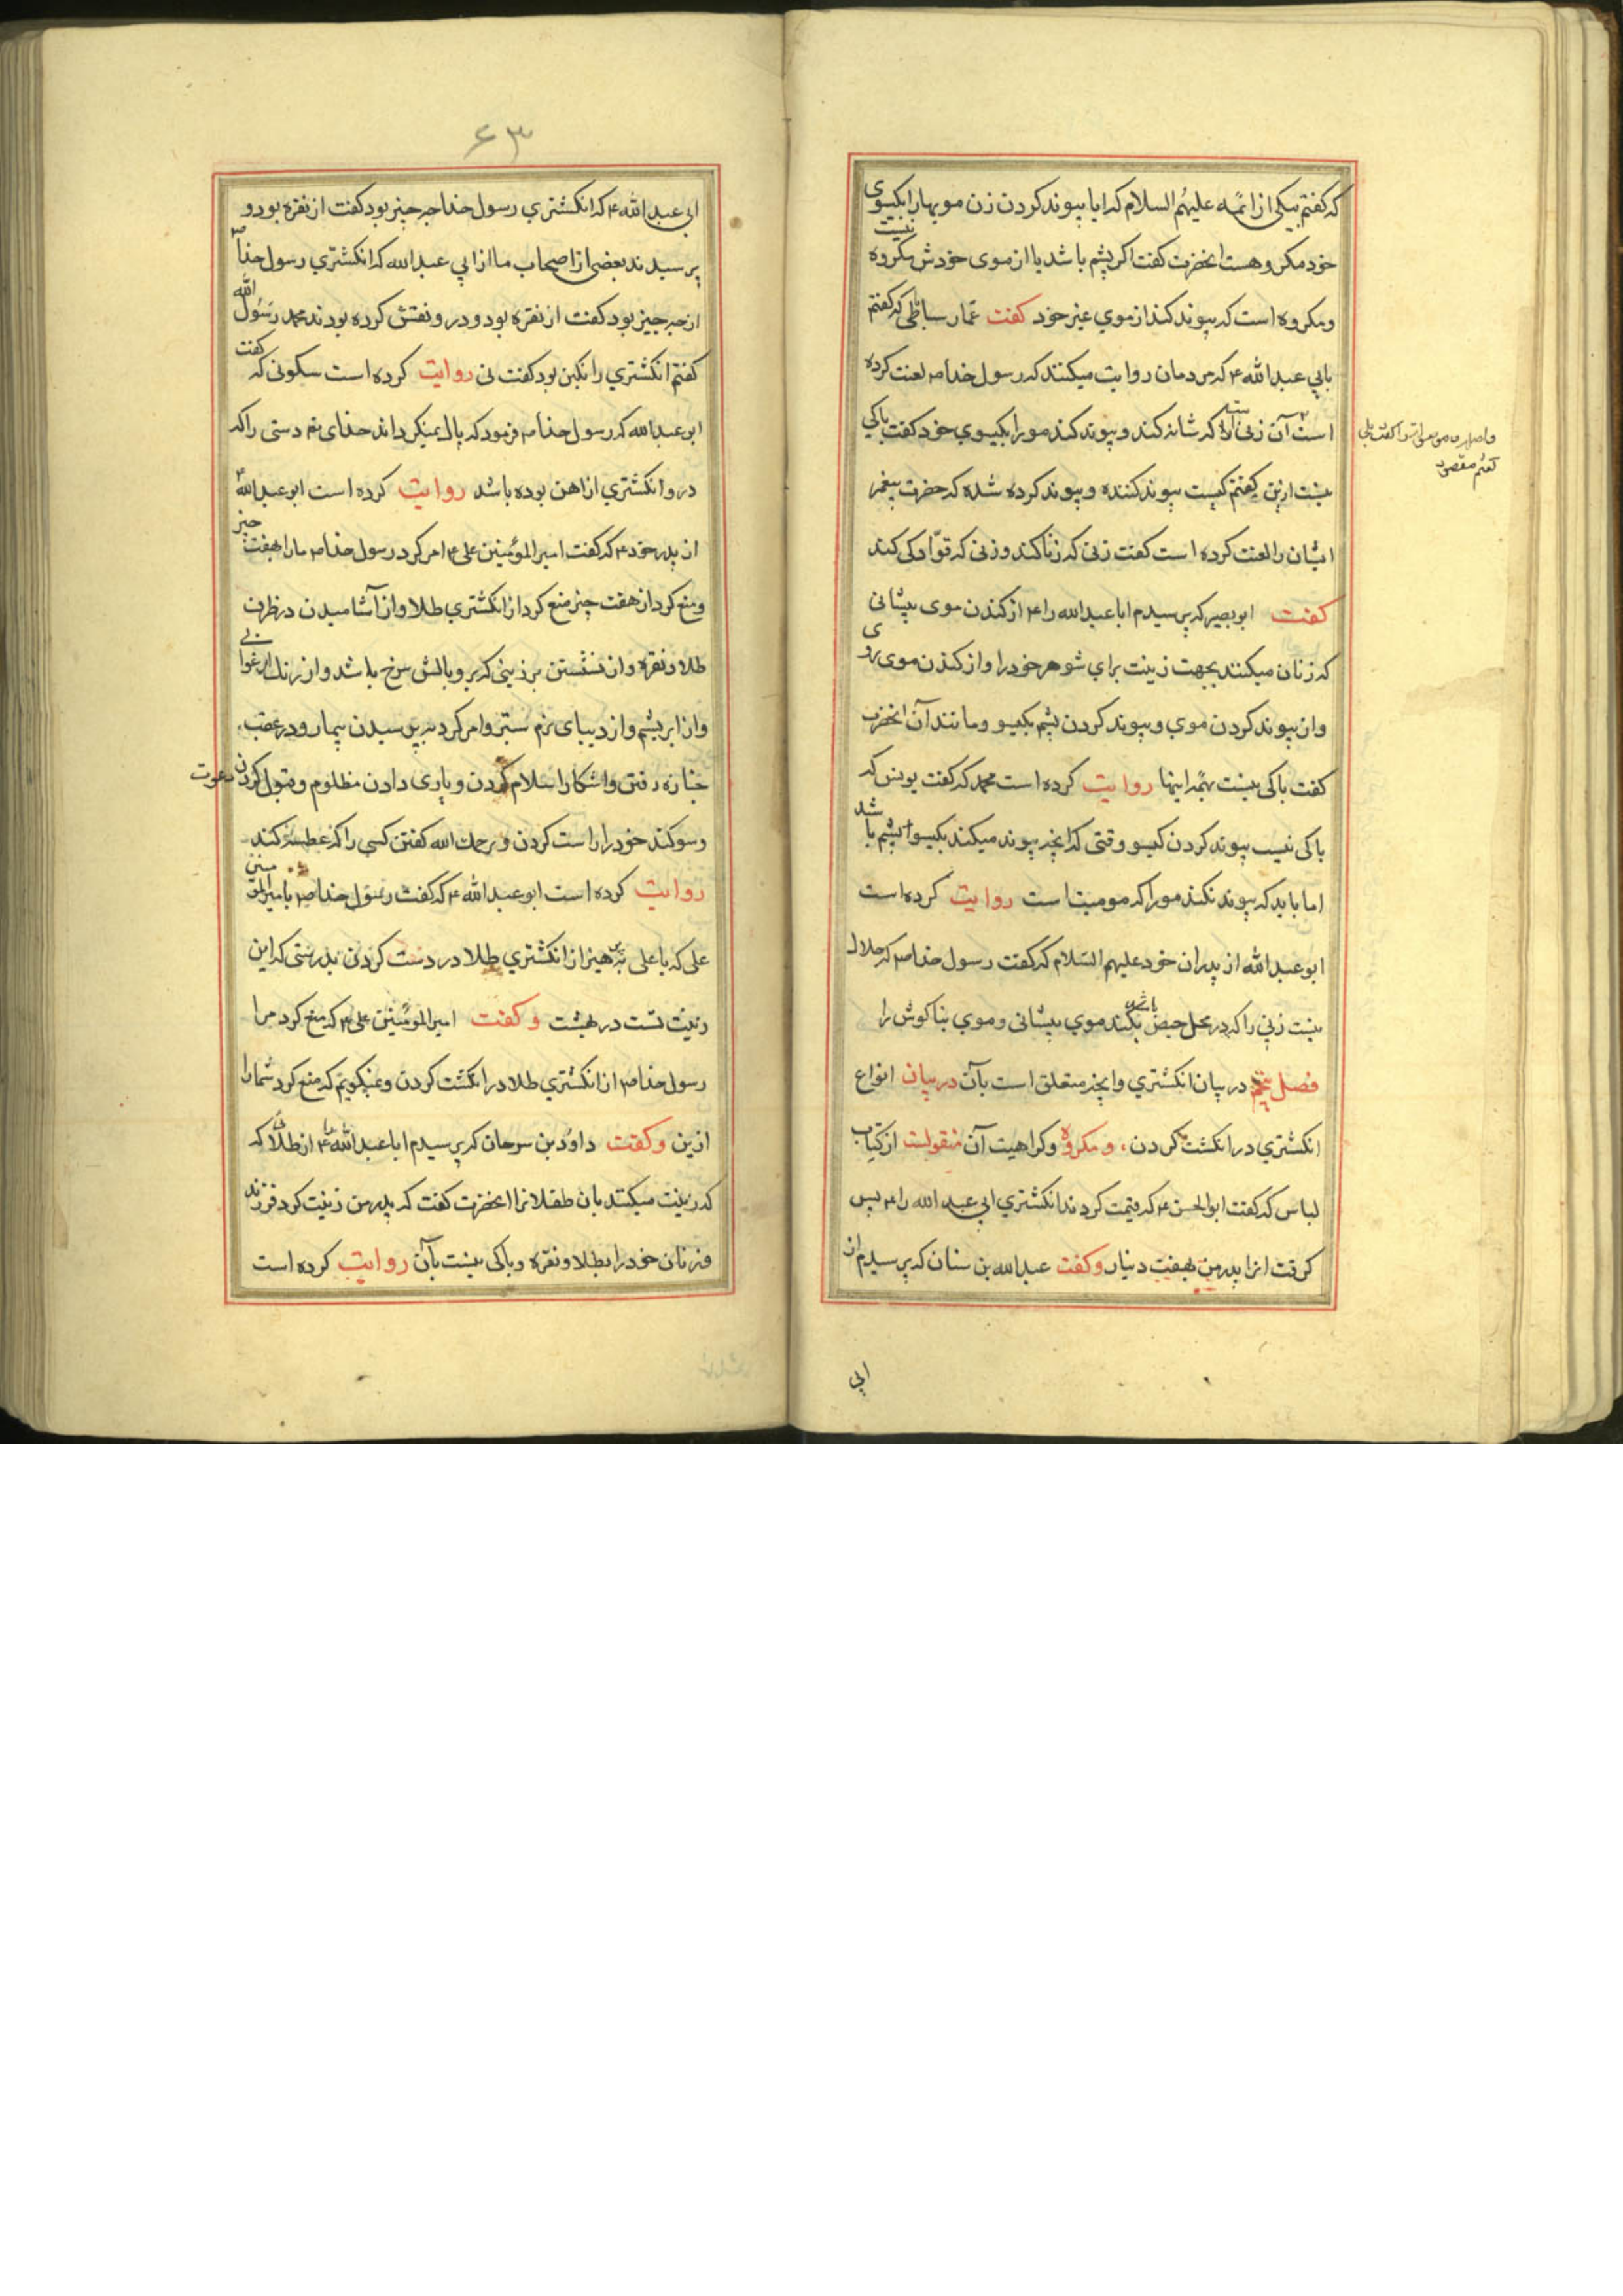 که گفتم بیکی از ائمه علیهم السلام که ایا پیوند کردن زن مویها را بکیسوی
خود مکروهست انحضرت گفت اکر پشم باشد یا از موی خودش مکروه نیست
ومکروه است که پیوند کند از موی غیر خود گفت عمار ساباطی که گفتم
بابی عبد الله ۴ که مردمان روایت میکنند که رسول خدا صم لعنت کرده
است آن زنی را که شانه کند و پیوند کند مو را بکیسوی خود گفت باکی
نیست ازین گفتم کیست پیوند کننده و پیوند کرده شده که حضرت پیغمبر
ایشان را لعنت کرده است گفت زنی که زنا کند و زنی که قوّادکی کند
گفت ابو بصیر که پرسیدم ابا عبد الله را ۴ از کندن موی پیشانی
که زنان میکنند بجهت زینت برای شوهر خود را و از کندن موی روی
وان پیوند کردن موی و پیوند کردن پشم بکیسو و مانند آن انحضرت
گفت باکی نیست بهمه اینها روایت کرده است محمد که گفت یونس که
باکی نیست پیوند کردن کیسو وقتی که انچه پیوند میکند بکیسو پشم باشد
اما باید که پیوند نکند مو را که مو میت است روایت کرده است
ابو عبد الله از پدران خود علیهم السلام که گفت رسول خدا صم که حلال
نیست زنی را که در محل حیض باشد بکند موی پیشانی و موی بناکوش را
فصل پنجم در بیان انکشتری و انچه متعلق است بآن در بیان انواع
انکشتری در انکشت کردن، و مکروه و کراهیت آن منقولست از کتاب
لباس که گفت ابو الحسن ۴ که قیمت کردند انکشتری ابی عبد الله را ۴ پس
کرفت انرا پدر من بهفت دینار و گفت عبد الله بن سنان که پرسیدم از
گفتم مقصود
ابی
۶۳
ابی عبد الله ۴ که انکشتری رسول خدا چه چیز بود گفت از نقره بود و
پرسیدند بعضی از اصحاب ما از ابی عبد الله که انکشتری رسول خدا صم
از چه چیز بود گفت از نقره بود و در و نقش کرده بودند محمد رسول الله
گفتم انکشتری را نکین بود گفت نی روایت کرده است سکونی که گفت
ابو عبد الله که رسول خدا صم فرمود که پاک نمیکرداند خدای تع دستی را که
در و انکشتری از اهن بوده باشد روایت کرده است ابو عبد الله ۴
از پدر خود ۴ که گفت امیر المؤمنین علی ۴ امر کرد رسول خدا صم ما را بهفت چیز
و منع کرد از هفت چیز منع کرد از انکشتری طلا و از آشامیدن در ظرف
طلا و نقره و از نشستن بر زینی که بر و بالش سرخ باشد و از رنک ارغوانی
و از ابریشم و از دیبای نرم ستبر و امر کرد به پرسیدن بیمار و در عقب
جنازه رفتن و اشکار اسلام کردن و یاری دادن مظلوم و قبول کردن دعوت
و سوکند خود را راست کردن و یرحمك الله گفتن کسی را که عطسه کند
روایت کرده است ابو عبد الله ۴ که گفت رسول خدا صم با امیر المؤمنین
علی که یا علی پرهیز از انکشتری طلا در دست کردن بدرستی که این
زینت تست در بهشت و گفت امیر المؤمنین علی ۴ که منع کرد مرا
رسول خدا صم از انکشتری طلا در انکشت کردن و نمیکویم که منع کرد شما را
ازین و گفت داود بن سرحان که پرسیدم ابا عبد الله ۴ از طلا که
که زینت میکنند بان طفلانرا انحضرت گفت که پدر من زینت کرد فرزند
و زنان خود را بطلا و نقره و باکی نیست بآن روایت کرده است